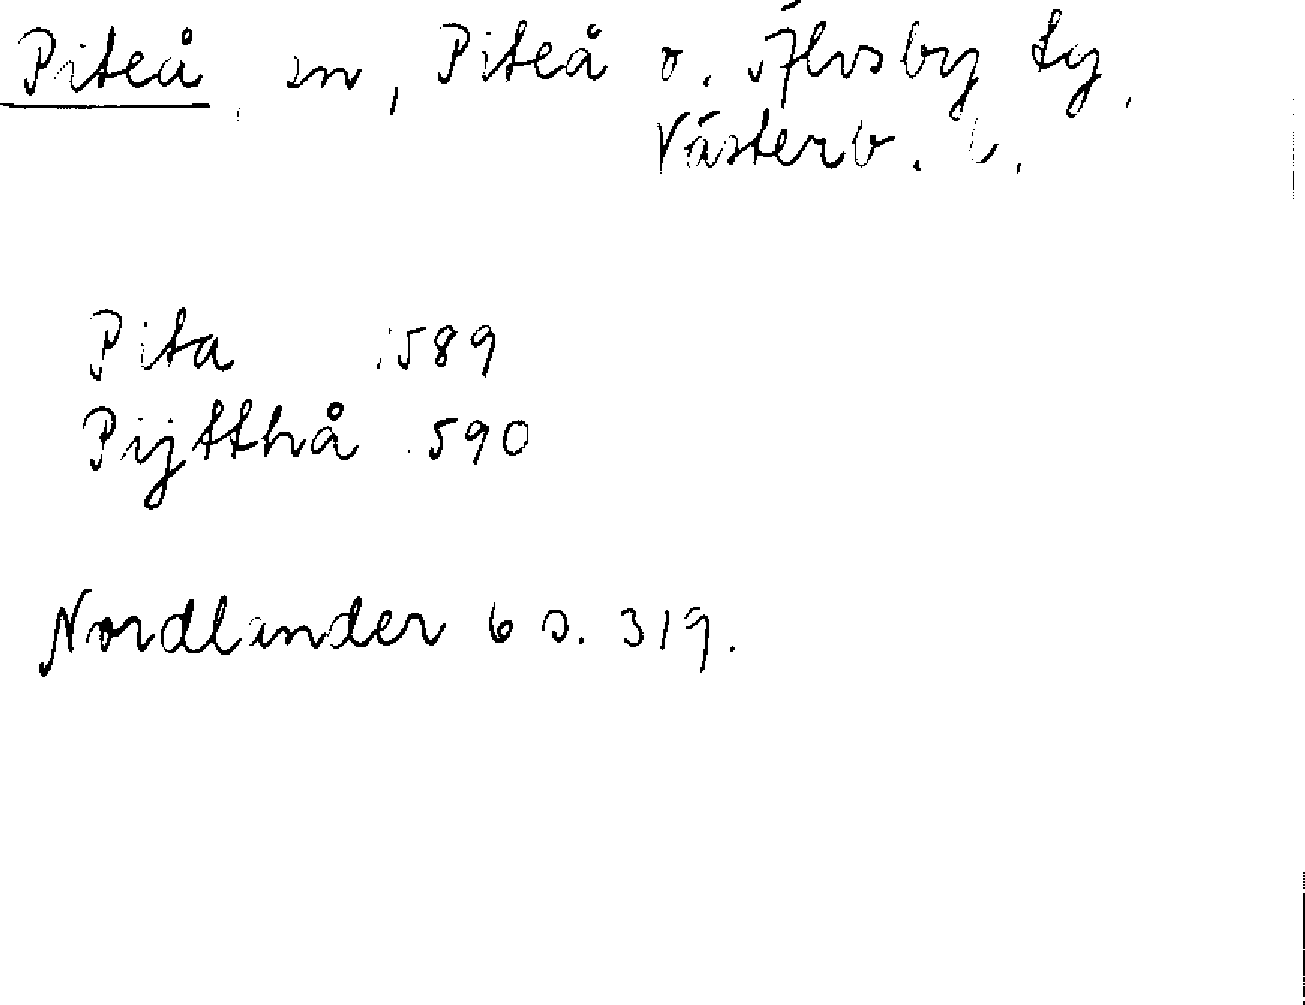 Piteå, sn, Piteå o. Älvsby tg,
Västerb. l.
Pita 1589
Pijtthå 1590
Nordlander 6 s. 319.